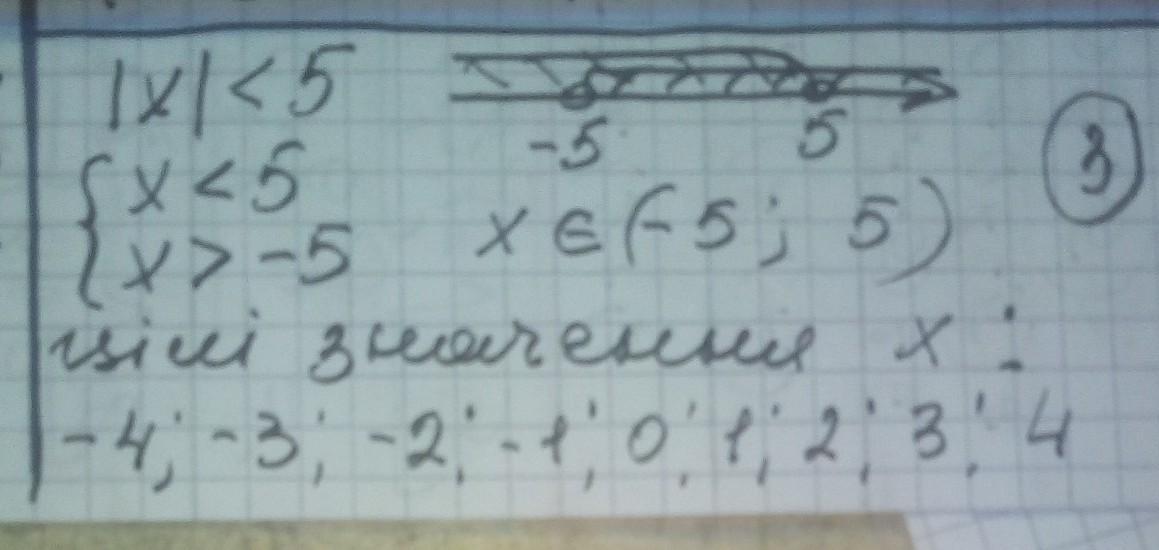 |x| < 5
-5 5
③
{ x < 5
x > -5
x ∈ (-5; 5)
цілі значення x :
-4; -3; -2; -1; 0; 1; 2; 3; 4